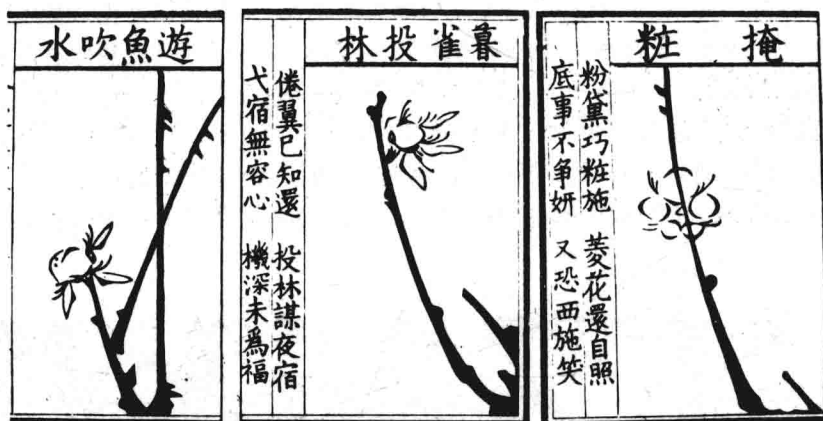 掩粧
粉黛巧粧施 菱花還自照
底事不争妍 又恐西施笑
暮雀投林
倦翼已知還 投林謀夜宿
弋宿無容心 機深未爲福
遊魚吹水